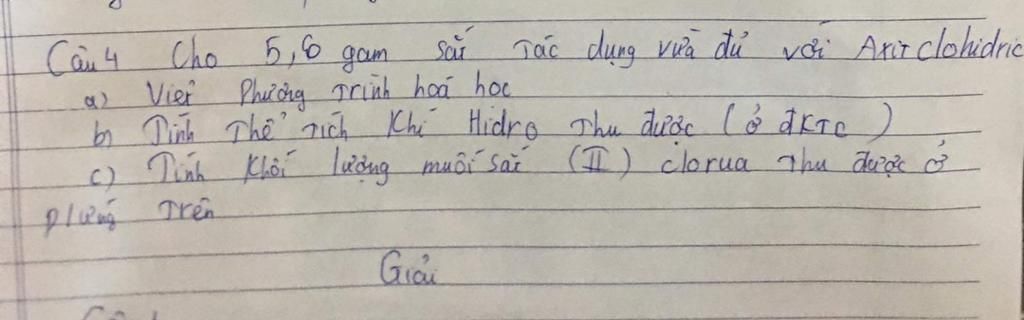 Câu 4 Cho 5,6 gam sắt Tác dụng vừa đủ với Axit clohidric
a) Viết Phương Trình hoá học
b) Tính Thể Tích Khí Hidro Thu được (ở ĐKTC)
c) Tính Khối lượng muối sắt (II) clorua Thu được ở
P/ứng Trên
Giải